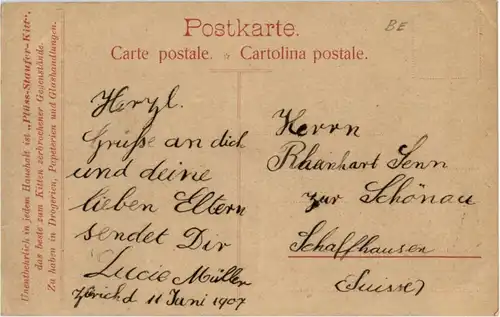 Postkarte.
Carte postale. ☆ Cartolina postale.
BE
Unentbehrlich in jedem Haushalt ist „Plüss-Staufer-Kitt“,
das beste zum Kitten zerbrochener Gegenstände.
Zu haben in Drogerien, Papeterien und Glashandlungen.
Herzl.
Grüße an dich
und deine
lieben Eltern
sendet Dir
Lucie Müller
Zürich d 11 Juni 1907
Herrn
Rhainhart Senn
zur Schönau
Schaffhausen
(Suisse)